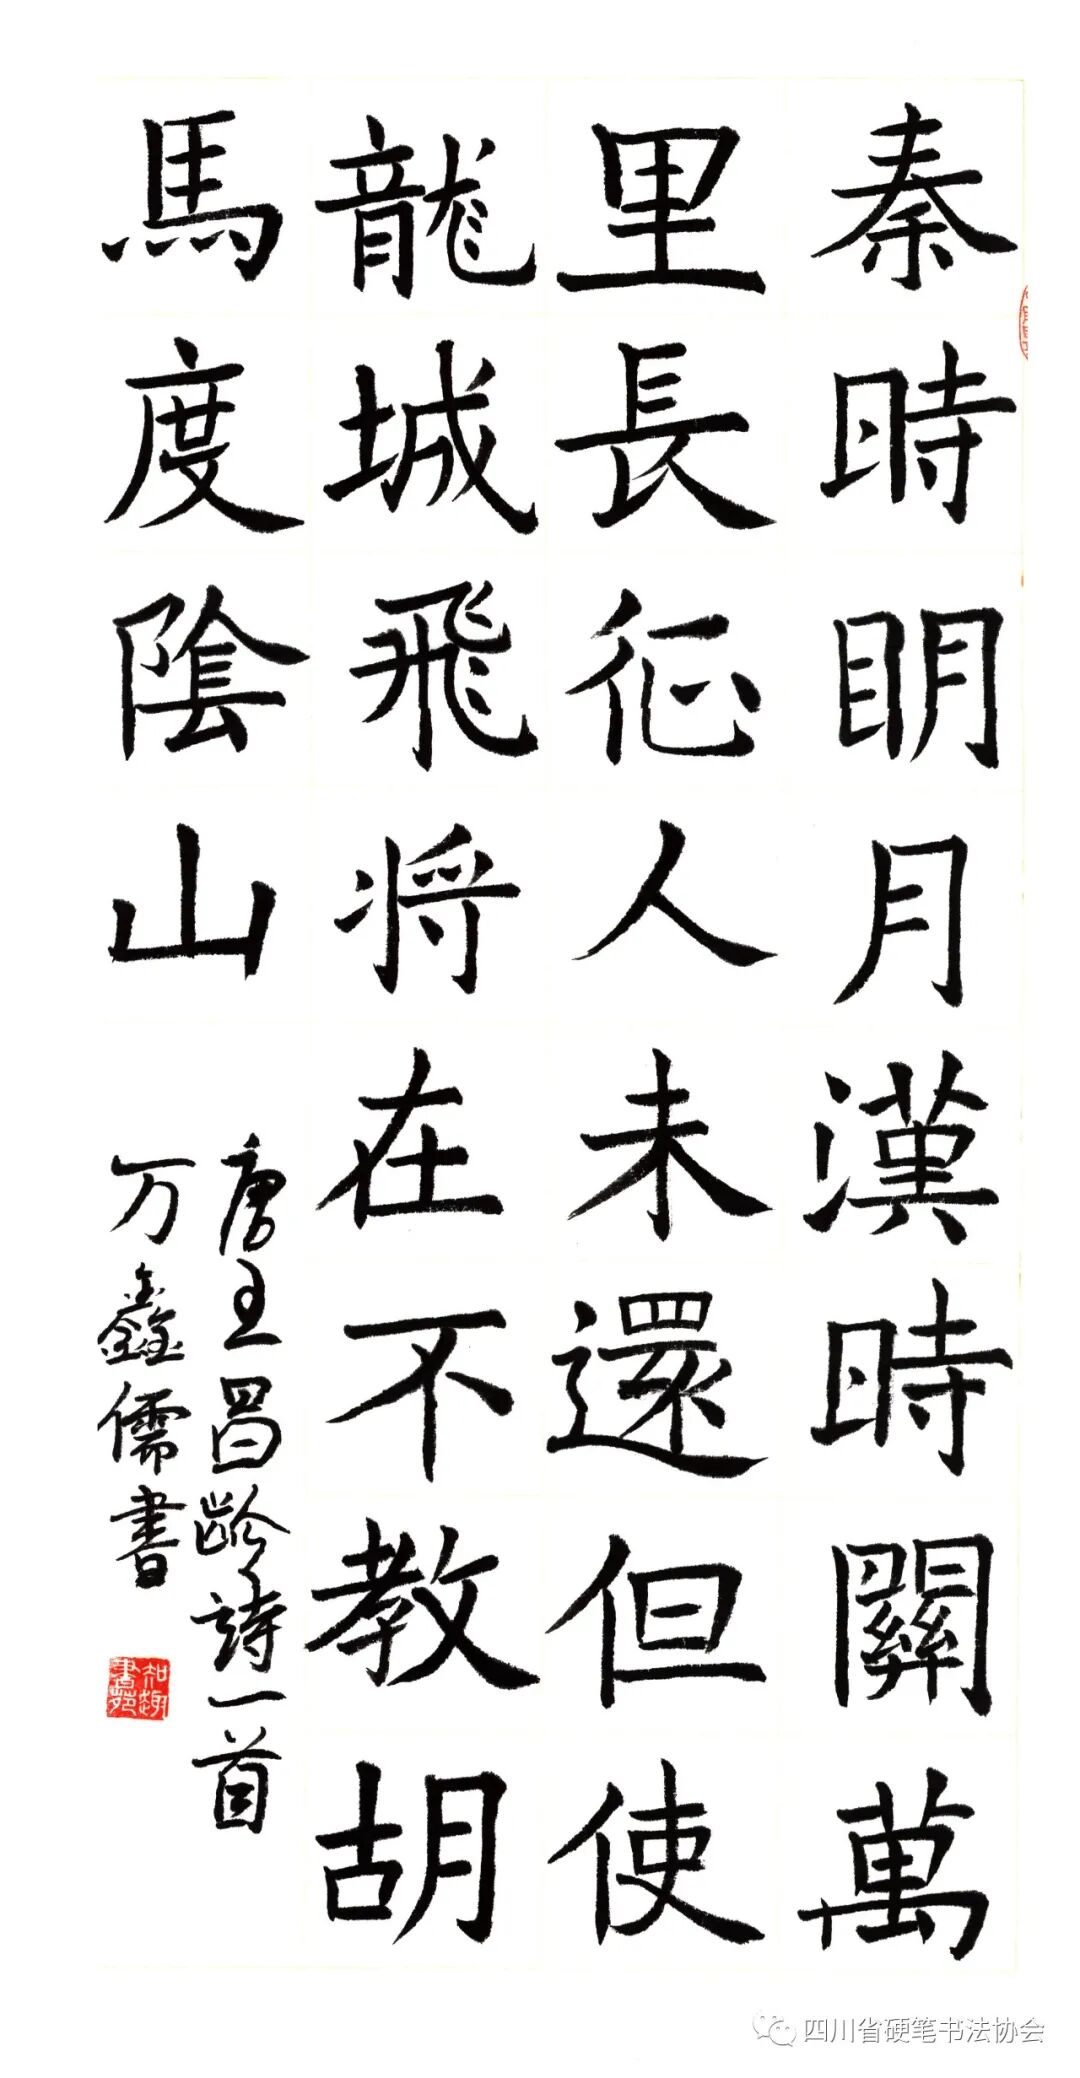 秦時明月漢時關萬
里長征人未還但使
龍城飛将在不教胡
馬度陰山
唐王昌齡詩一首
万鑫儒書
知趣書苑
四川省硬笔书法协会